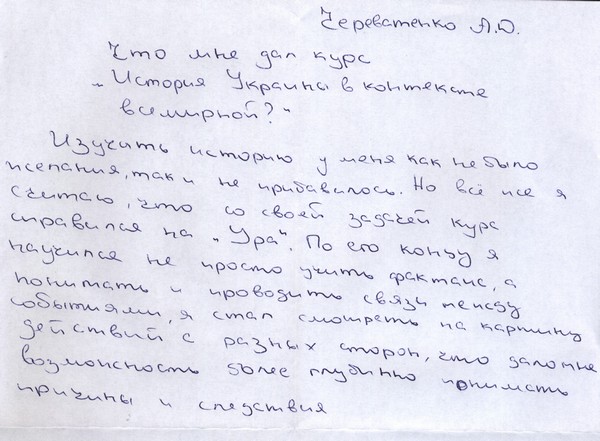 Череватенко А.Ю.
Что мне дал курс
„История Украины в контексте
всемирной?"
Изучить историю у меня как не было
желания, так и не прибавилось. Но всё же я
считаю, что со своей задачей курс
справился на „Ура". По его концу я
научился не просто учить фактаж, а
понимать и проводить связи между
событиями, я стал смотреть на картину
действий с разных сторон, что дало мне
возможность более глубинно понимать
причины и следствия